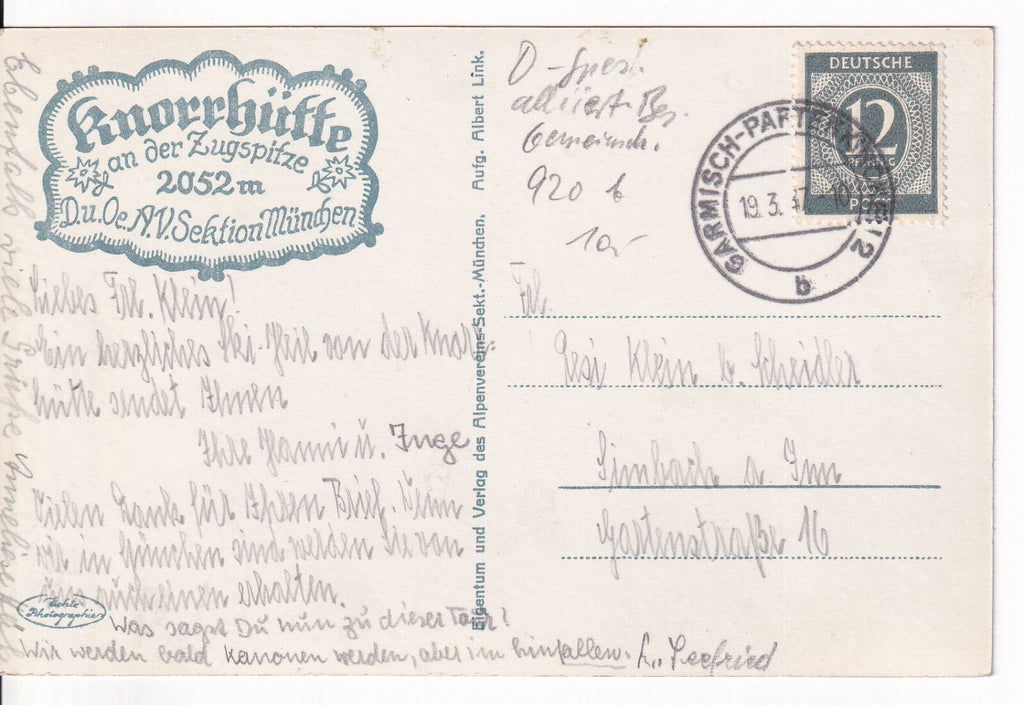 Knorrhütte
an der Zugspitze
2052 m
D.u.Oe.A.V.Sektion München
Liebes Frl. Klein!
Ein herzliches Ski-Heil von der Knorr-
hütte sendet Ihnen
Ihre Hanni u. Inge
Vielen Dank für Ihren Brief. Wenn
wir in München sind werden Sie von
uns auch einen erhalten.
Was sagst Du nun zu dieser Tour?
Wir werden bald Kanonen werden, aber im hinfallen. L. Seefried
Ebenfalls viele Grüße
Echte
Photographie
Eigentum und Verlag des Alpenvereins-Sekt.-München. Aufg. Albert Link.
D-Spez.
alliiert. Bes.
Gemeinsch.
920 b
DEUTSCHE
12
PFENNIG
POST
GARMISCH-PARTENKIRCHEN 2
19. 3. 47
b
Frl.
Resi Klein b. Scheidler
Simbach a Inn
Gartenstraße 16